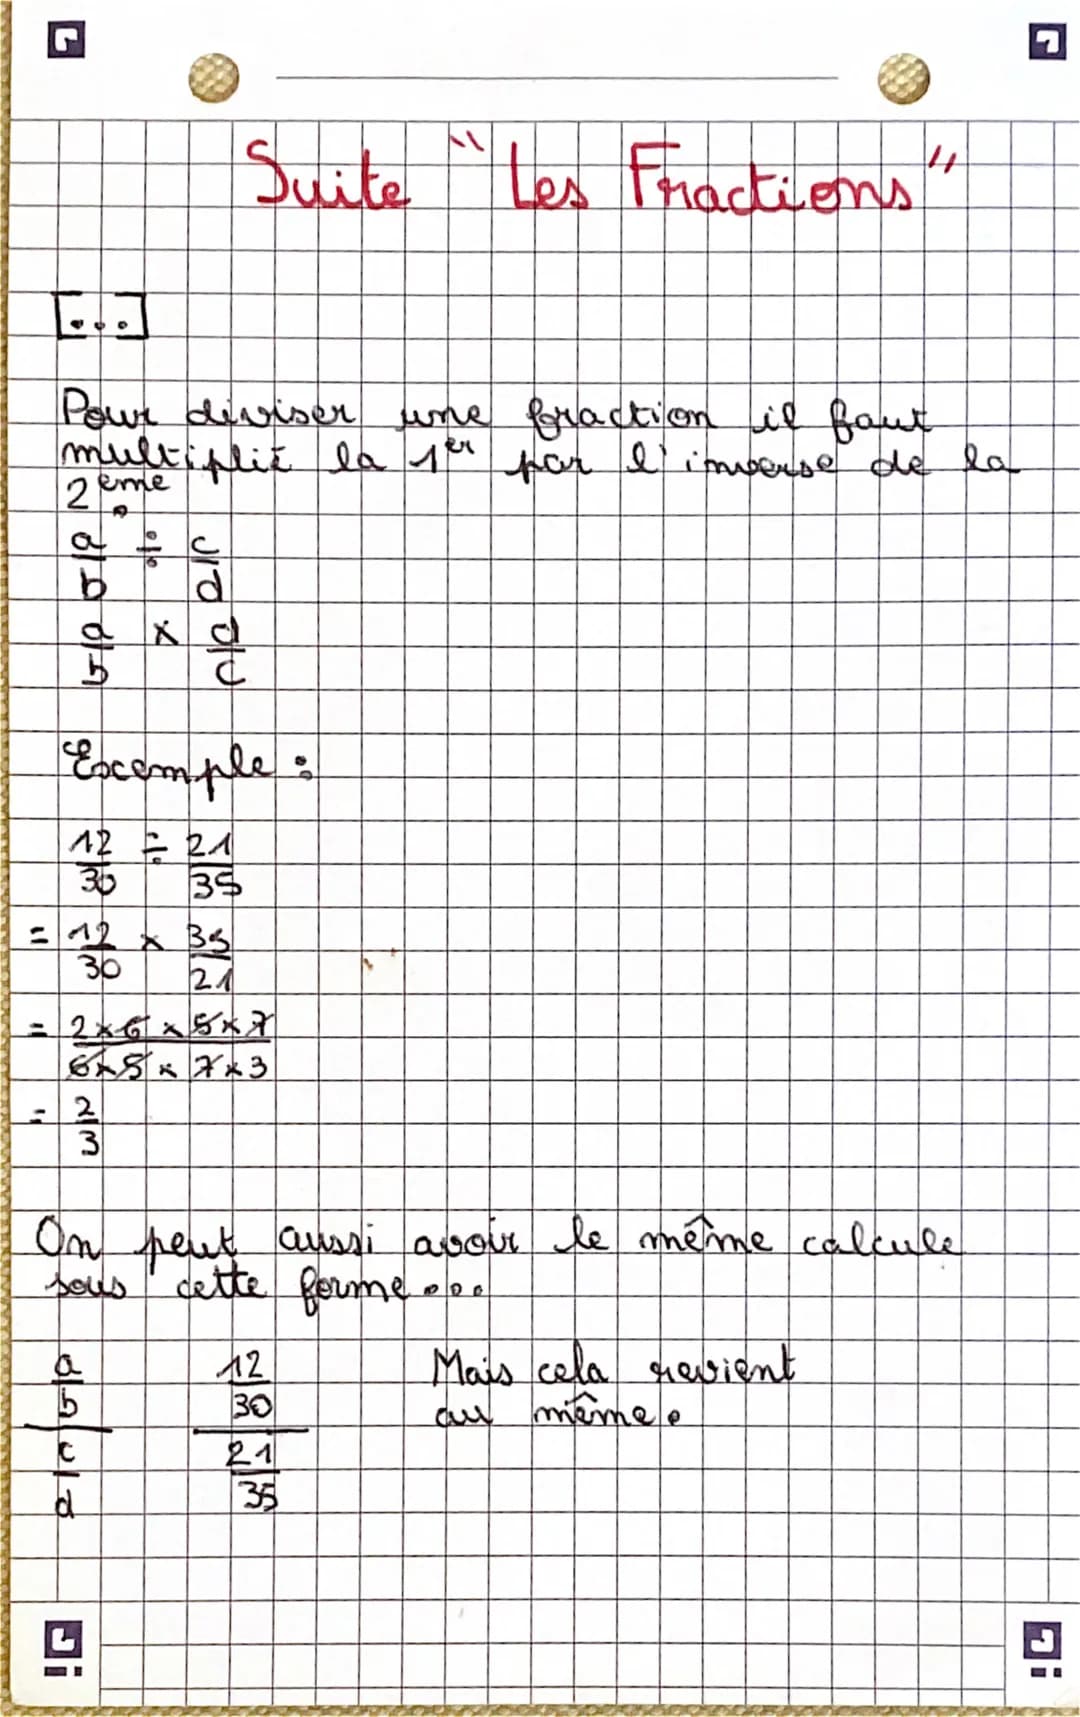 Suite "Les Fractions"
[...]
Pour diviser une fraction il faut
multiplié la 1er par l'inverse de la
2eme.
a/b ÷ c/d
a/b × d/c
Exemple :
12/30 ÷ 21/35
= 12/30 × 35/21
= 2×6×5×7 / 6×5×7×3
= 2/3
On peut aussi avoir le même calcule
sous cette forme...
a/b / c/d
12/30 / 21/35
Mais cela revient
au même.